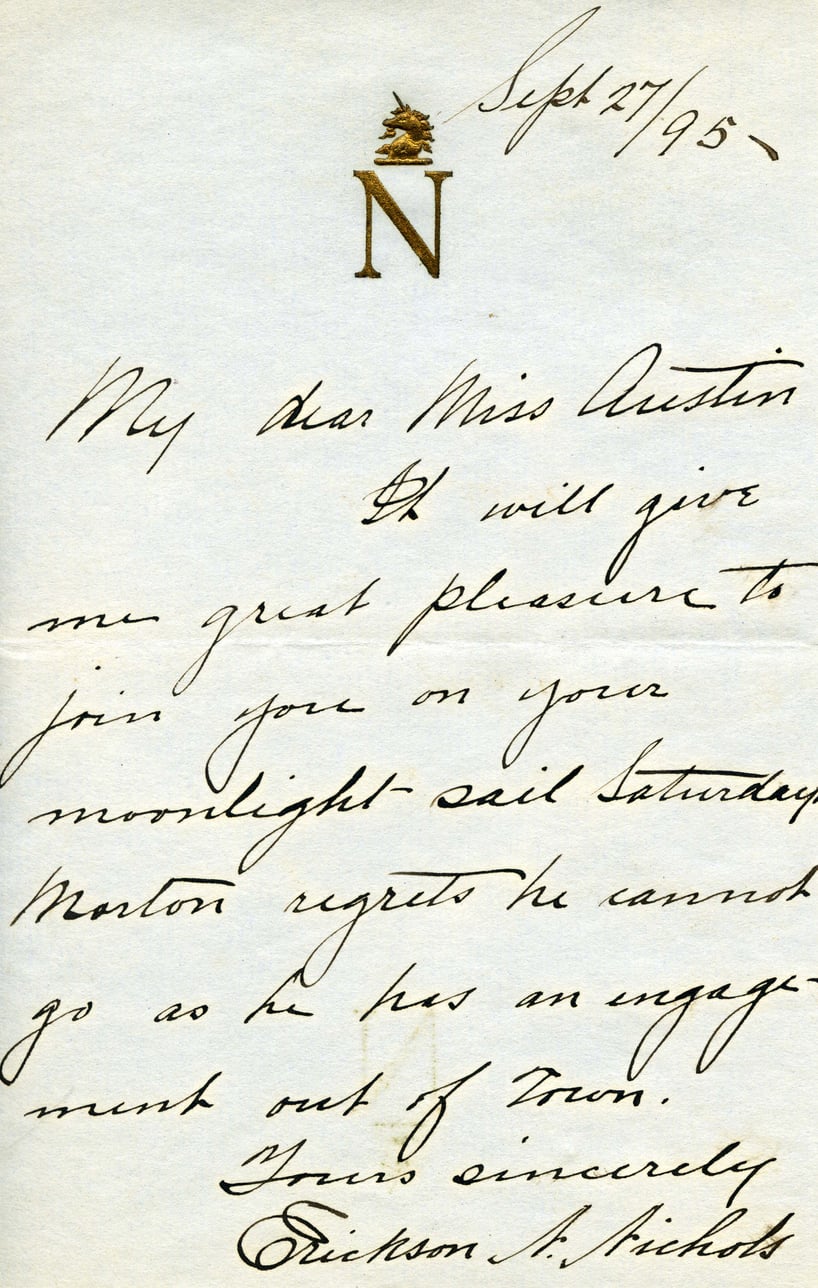 Sept 27/95
N
My dear Miss Austin
It will give
me great pleasure to
join you on your
moonlight sail Saturday
Morton regrets he cannot
go as he has an engage-
ment out of Town.
Yours sincerely
Erickson N. Nichols